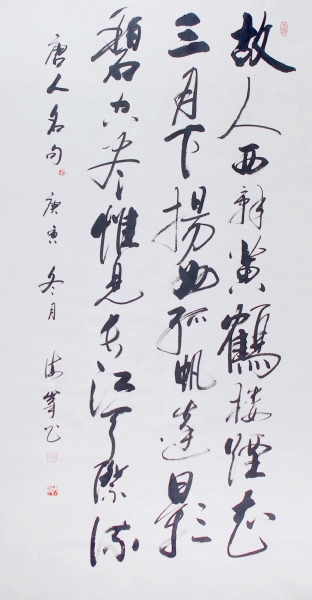 故人西辭黃鶴樓煙花
三月下揚州孤帆遠影
碧空盡惟見長江天際流
唐人名句 庚寅 冬月